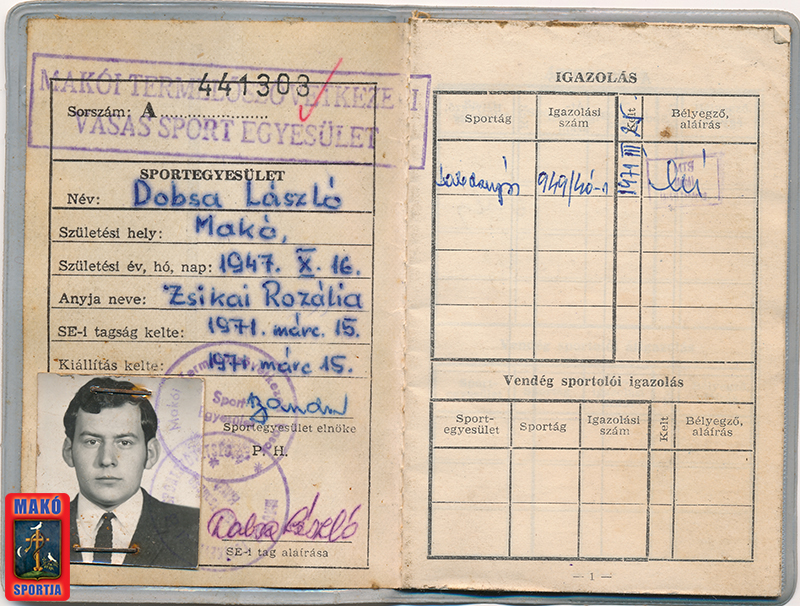 MAKÓI TERMELŐSZÖVETKEZETI
VASAS SPORT EGYESÜLET
441303
Sorszám: A
SPORTEGYESÜLET
Név: Dobsa László
Születési hely: Makó,
Születési év, hó, nap: 1947. X. 16.
Anyja neve: Zsikai Rozália
SE-i tagság kelte: 1971. márc. 15.
Kiállítás kelte: 1971. márc 15.
Sportegyesület elnöke
P. H.
Dobsa László
SE-i tag aláírása
MAKÓ
SPORTJA
IGAZOLÁS
Sportág
Igazolási szám
Kelt
Bélyegző, aláírás
Labdarúgás
949/40-1
1971 III 25
MTS
Vendég sportolói igazolás
Sport-egyesület
Sportág
Igazolási szám
Kelt
Bélyegző, aláírás
— 1 —